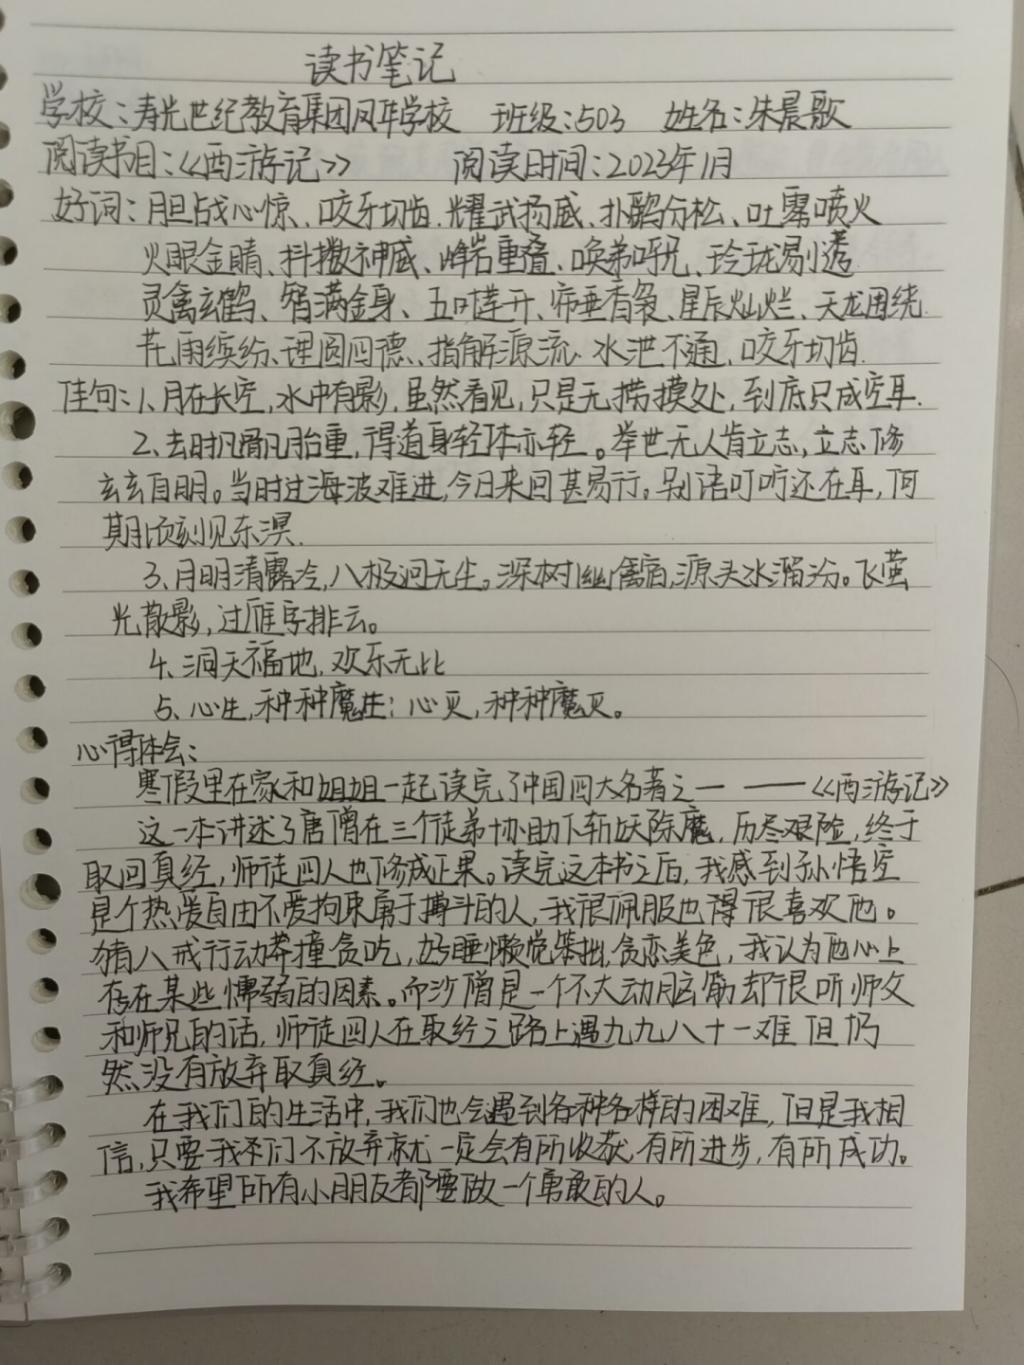 读书笔记
学校：寿光世纪教育集团凤华学校 班级：503 姓名：朱晨歌
阅读书目：《西游记》 阅读时间：2023年1月
好词：胆战心惊、咬牙切齿、耀武扬威、扑鹳分松、吐雾喷火
火眼金睛、抖擞神威、峰岩重叠、唤弟呼兄、玲珑剔透
灵禽玄鹤、智满金身、五叶莲开、帘垂香袅、星辰灿烂、天龙围绕
花雨缤纷、理圆四德、指解源流、水泄不通、咬牙切齿.
佳句：1、月在长空，水中有影，虽然看见，只是无捞摸处，到底只成空耳.
2、去时凡骨凡胎重，得道身轻体亦轻。举世无人肯立志，立志修
玄玄自明。当时过海波难进，今日来回甚易行。别语叮咛还在耳，何
期顷刻见东溟.
3、月明清露冷，八极迥无尘。深树幽禽宿，源头水溜汾。飞萤
光散影，过雁字排云。
4、洞天福地，欢乐无比
5、心生，种种魔生；心灭，种种魔灭。
心得体会：
寒假里在家和姐姐一起读完了中国四大名著之一 ——《西游记》
这一本讲述了唐僧在三个徒弟协助下斩妖除魔，历尽艰险，终于
取回真经，师徒四人也修成正果。读完这本书之后，我感到孙悟空
是个热爱自由不爱拘束勇于搏斗的人，我很佩服也得很喜欢他。
猪八戒行动莽撞贪吃，好睡懒觉笨拙，贪恋美色，我认为他心上
存在某些懦弱的因素。而沙僧是一个不大动脑筋却很听师父
和师兄的话，师徒四人在取经之路上遇九九八十一难但仍
然没有放弃取真经。
在我们的生活中，我们也会遇到各种各样的困难，但是我相
信，只要我们不放弃就一定会有所收获，有所进步，有所成功。
我希望所有小朋友都要做一个勇敢的人。